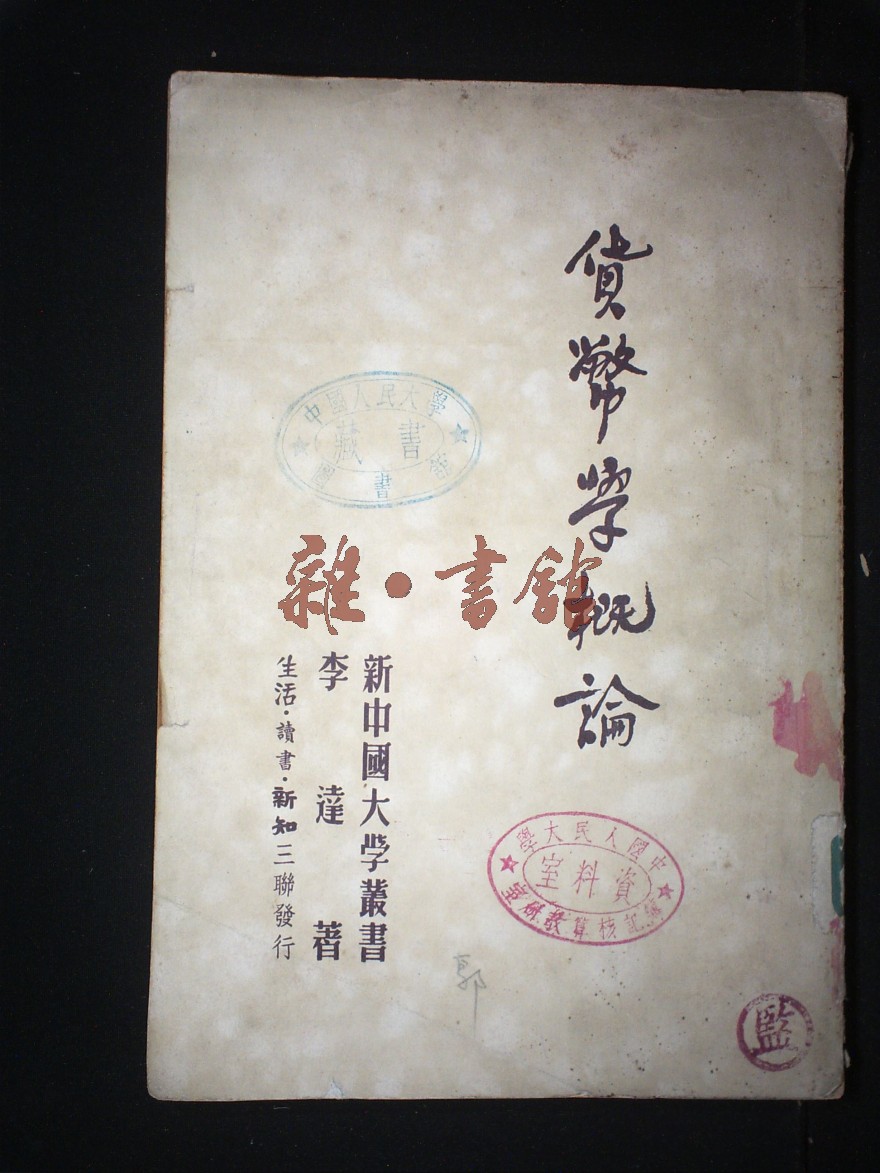 貨幣學概論
中國人民大學
圖書館
藏書
雜•書館
新中國大学叢書
李達著
生活·讀書·新知三聯發行
中國人民大學
簿記核算教研室
資料室
郭
監